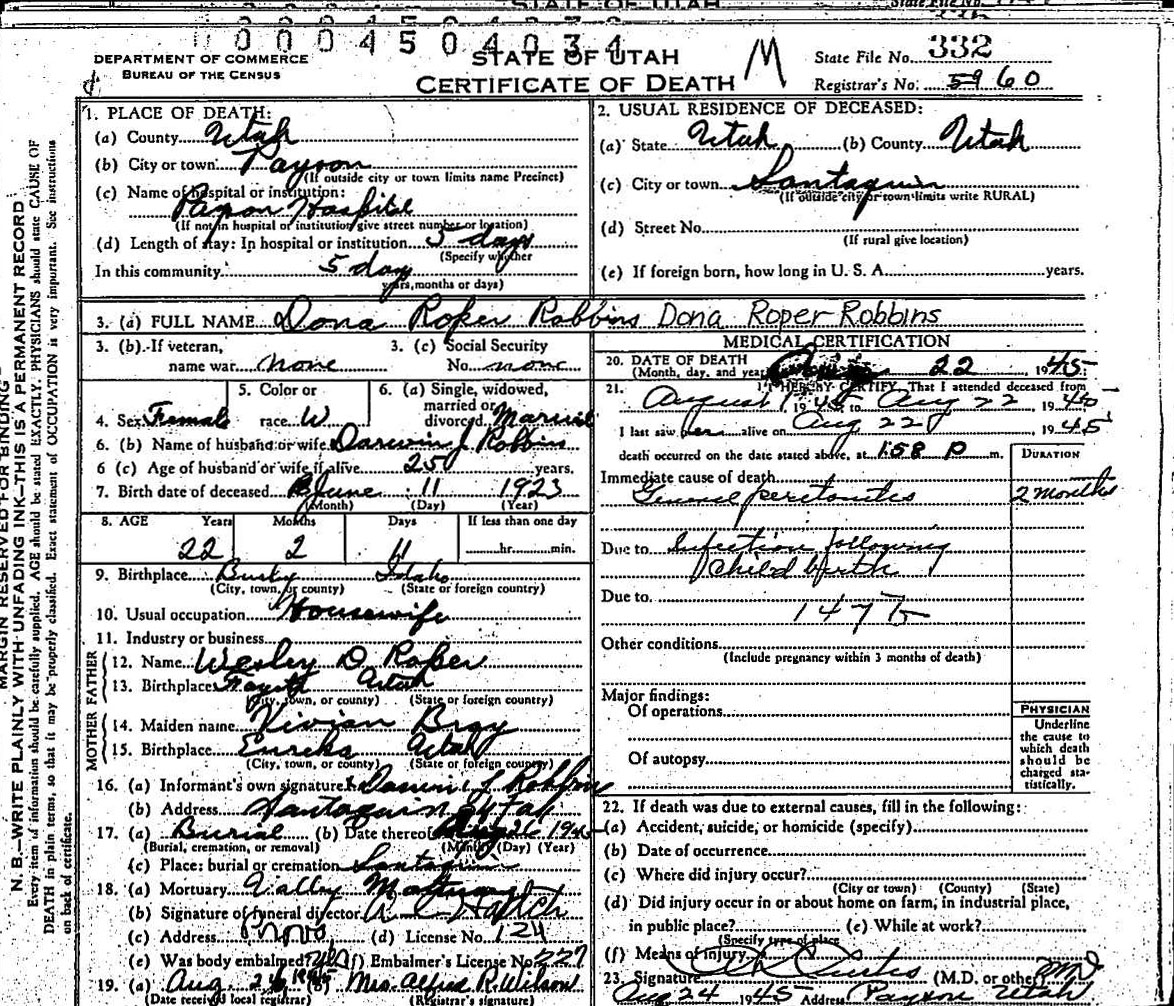 STATE OF UTAH
State File No.
0004504034
DEPARTMENT OF COMMERCE
BUREAU OF THE CENSUS
STATE OF UTAH
CERTIFICATE OF DEATH
M
State File No. 332
Registrar's No. 5960
MARGIN RESERVED FOR BINDING
N. B.—WRITE PLAINLY WITH UNFADING INK—THIS IS A PERMANENT RECORD
Every item of information should be carefully supplied. AGE should be stated EXACTLY. PHYSICIANS should state CAUSE OF
DEATH in plain terms, so that it may be properly classified. Exact statement of OCCUPATION is very important. See instructions
on back of certificate.
1. PLACE OF DEATH:
(a) County Utah
(b) City or town Payson
(If outside city or town limits name Precinct)
(c) Name of hospital or institution:
Payson Hospital
(If not in hospital or institution give street number or location)
(d) Length of stay: In hospital or institution 5 days
(Specify whether
In this community 5 day
years, months or days)
2. USUAL RESIDENCE OF DECEASED:
(a) State Utah (b) County Utah
(c) City or town Santaquin
(If outside city or town limits write RURAL)
(d) Street No.
(If rural give location)
(e) If foreign born, how long in U. S. A. years.
3. (a) FULL NAME Dona Roper Robbins Dona Roper Robbins
3. (b) If veteran,
name war none
3. (c) Social Security
No. none
4. Sex Female
5. Color or
race W
6. (a) Single, widowed,
married or
divorced Married
6. (b) Name of husband or wife Darwin J Robbins
6 (c) Age of husband or wife if alive 25 years.
7. Birth date of deceased June 11 1923
(Month) (Day) (Year)
8. AGE Years Months Days If less than one day
22 2 11 hr. min.
9. Birthplace Burley Idaho
(City, town, or county) (State or foreign country)
10. Usual occupation Housewife
11. Industry or business
FATHER
12. Name Wesley D Roper
13. Birthplace Fayette Utah
(City, town, or county) (State or foreign country)
MOTHER
14. Maiden name Vivian Bray
15. Birthplace Eureka Utah
(City, town, or county) (State or foreign country)
16. (a) Informant's own signature Darwin J Robbins
(b) Address Santaquin Utah
17. (a) Burial (b) Date thereof Aug 26 1945
(Burial, cremation, or removal) (Month) (Day) (Year)
(c) Place: burial or cremation Santaquin
18. (a) Mortuary Valley Mortuary
(b) Signature of funeral director
(c) Address Provo (d) License No. 124
(e) Was body embalmed? yes (f) Embalmer's License No. 227
19. (a) Aug 26 1945 Mrs. Alfred R. Wilson
(Date received local registrar) (Registrar's signature)
MEDICAL CERTIFICATION
20. DATE OF DEATH
(Month, day, and year) 22 1945
21. I HEREBY CERTIFY, That I attended deceased from
August 1945 to Aug 22 1945
I last saw her alive on Aug 22 1945
death occurred on the date stated above, at 1:58 P m.
DURATION
Immediate cause of death
General peritonitis 2 months
Due to Infection following
Child birth
Due to
Other conditions
(Include pregnancy within 3 months of death)
Major findings:
Of operations
Of autopsy
PHYSICIAN
Underline
the cause to
which death
should be
charged sta-
tistically.
22. If death was due to external causes, fill in the following:
(a) Accident, suicide, or homicide (specify)
(b) Date of occurrence
(c) Where did injury occur?
(City or town) (County) (State)
(d) Did injury occur in or about home on farm, in industrial place,
in public place? (e) While at work?
(Specify type of place
(f) Means of injury
23. Signature Curtis (M.D. or other) MD
Aug 24 1945 Address Payson Utah